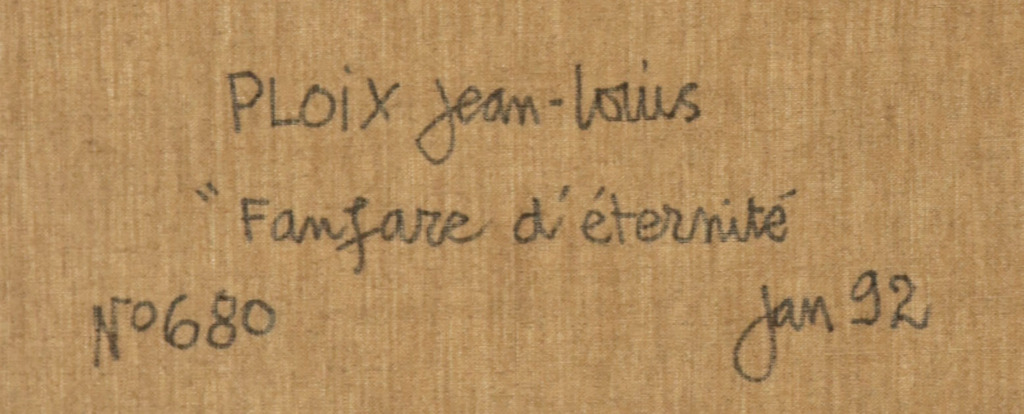 PLOIX jean-louis
" Fanfare d'éternité
N°680 jan 92